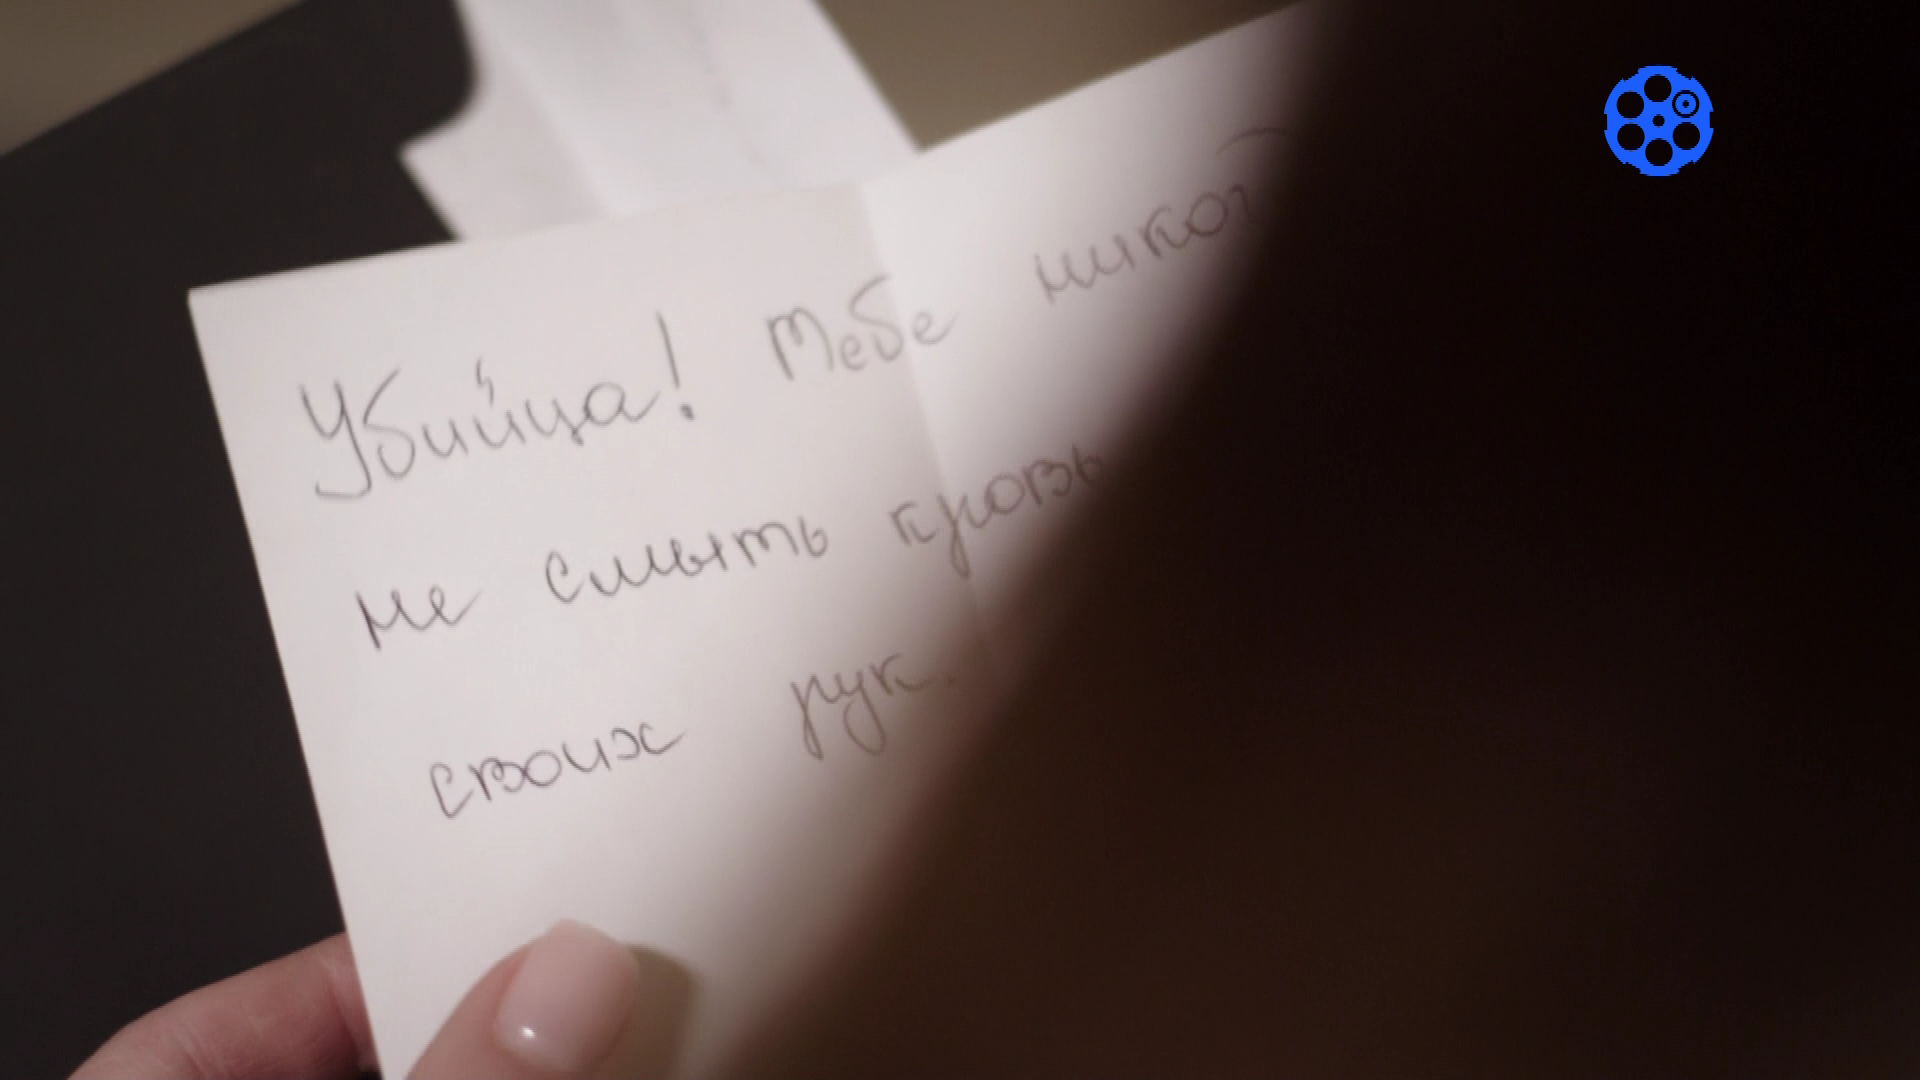 Убийца! Тебе никог
не смыть кровь
своих рук.